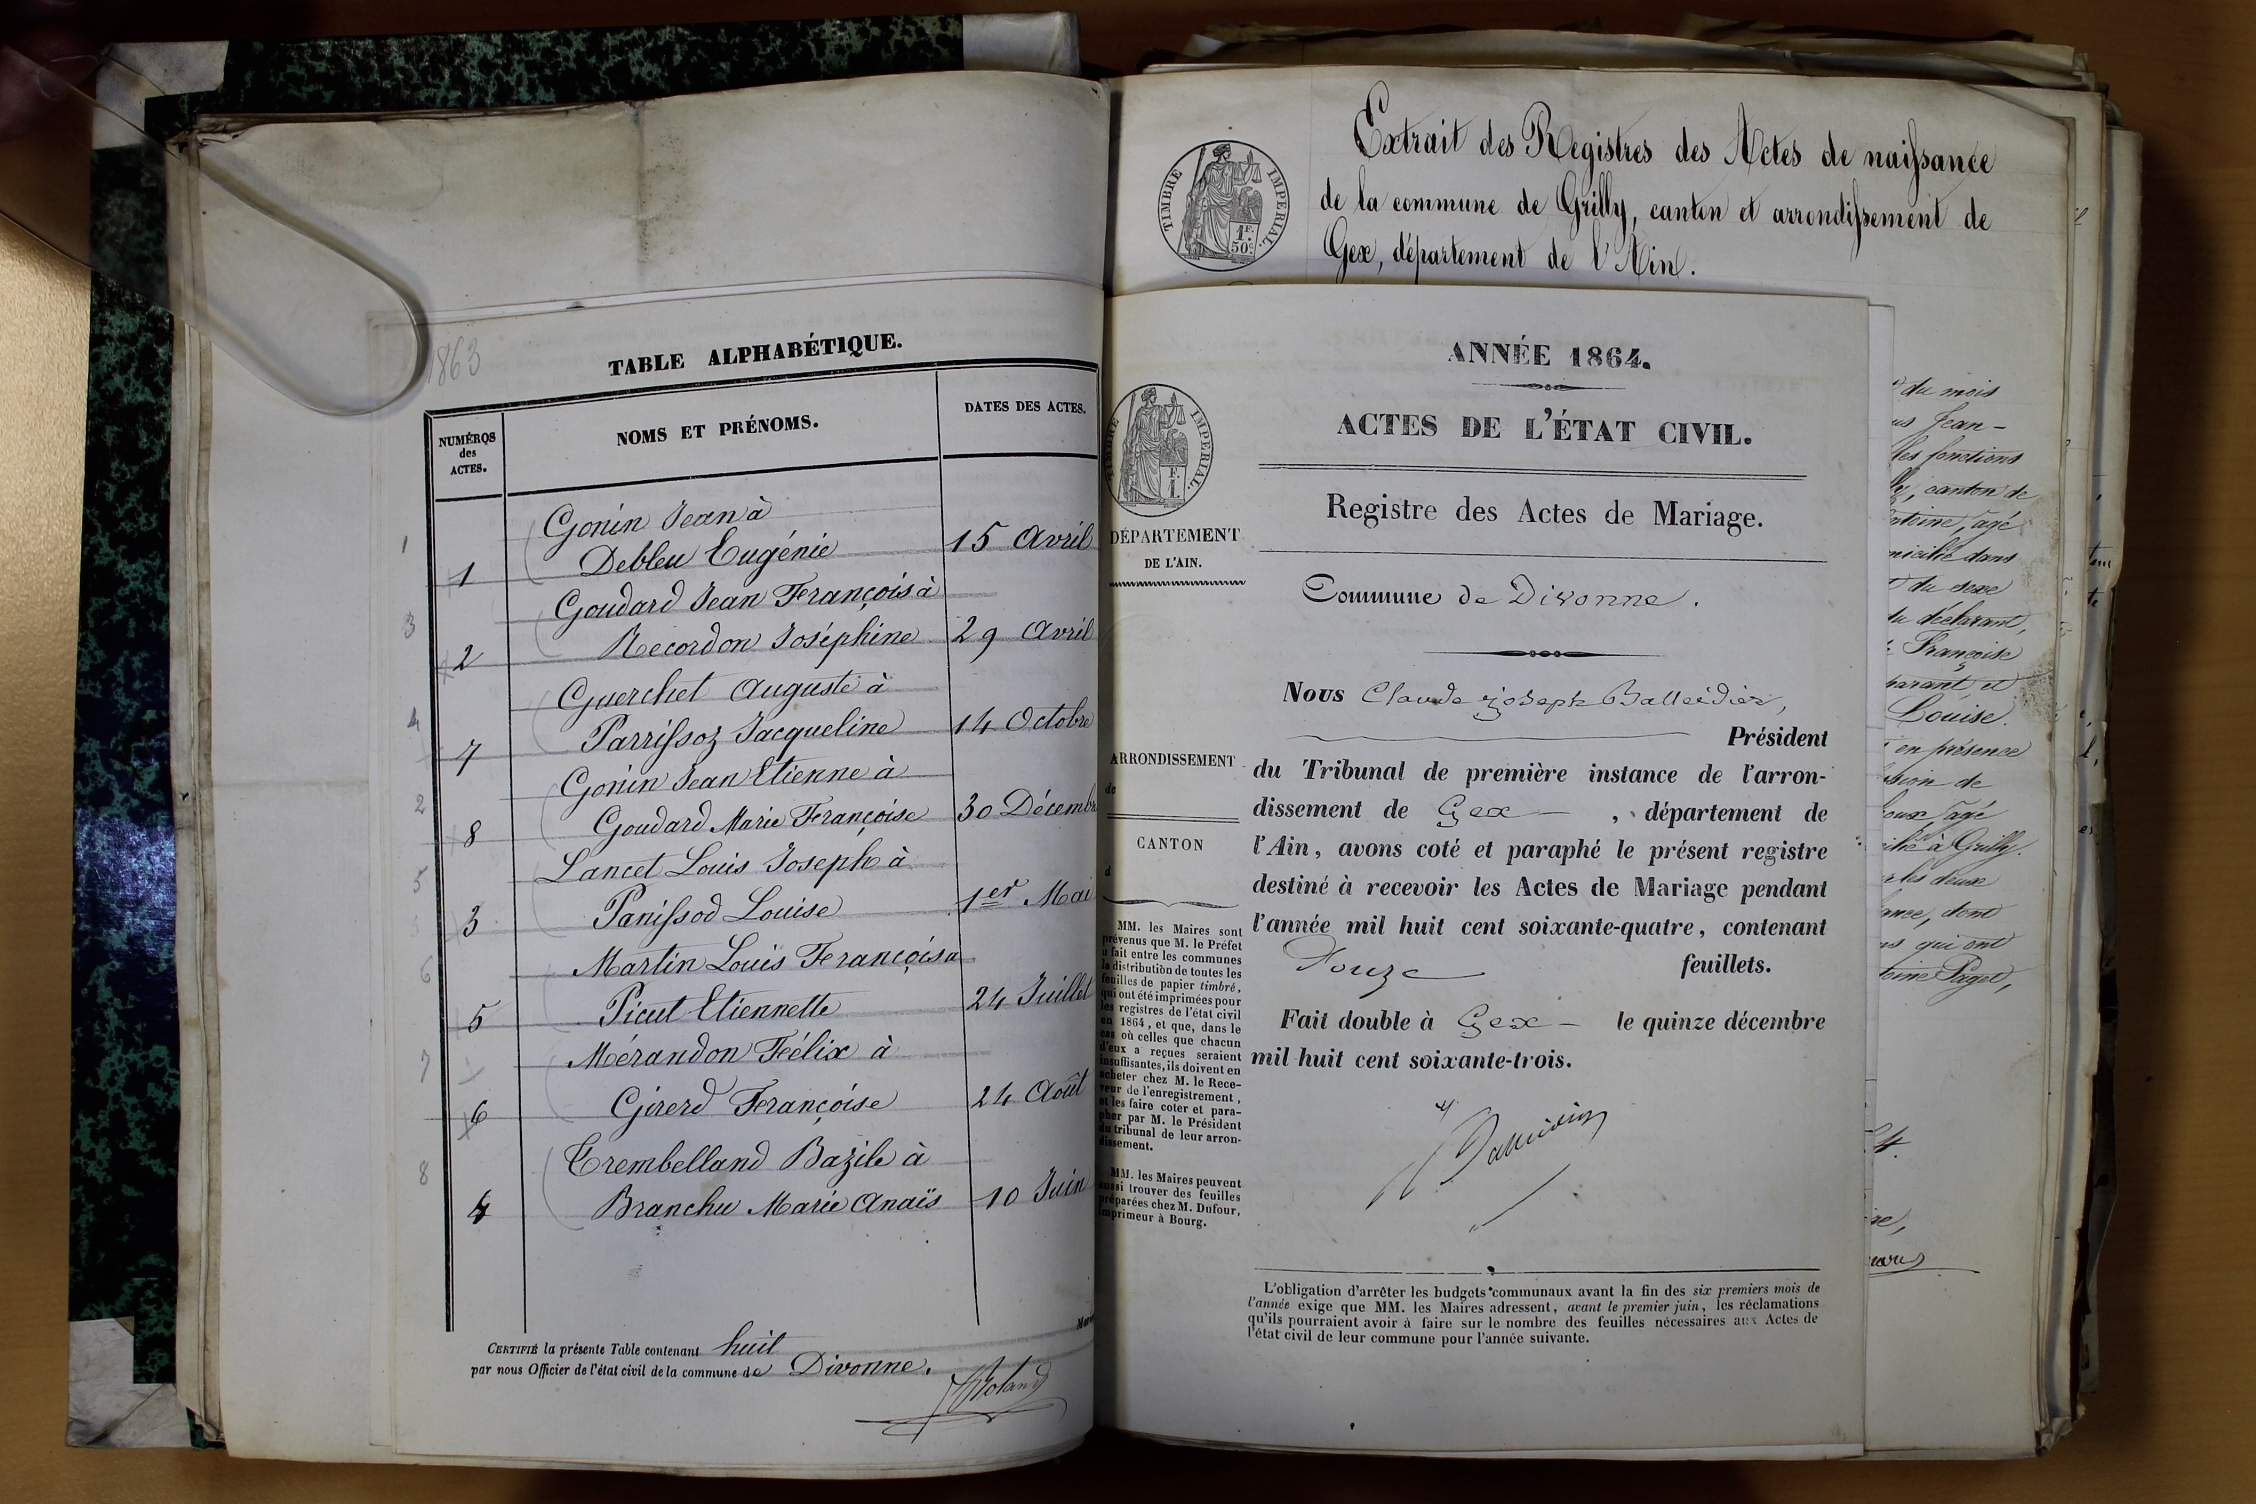 1863
TABLE ALPHABÉTIQUE.
NUMÉROS
des
ACTES.
NOMS ET PRÉNOMS.
DATES DES ACTES.
Gonin Jean à
1 1 Debleu Eugénie 15 Avril
Goudard Jean François à
3 2 Recordon Joséphine 29 Avril
Guerchet Auguste à
4 7 Parrissoz Jacqueline 14 Octobre
Gonin Jean Etienne à
2 8 Goudard Marie Françoise 30 Décembre
Lancet Louis Joseph à
5 3 Panissod Louise 1er Mai
Martin Louis François à
6 5 Picut Etiennette 24 Juillet
Mérandon Félix à
7 6 Girerd Françoise 24 Août
Trembelland Bazile à
8 4 Branchu Marie Anaïs 10 Juin
CERTIFIÉ la présente Table contenant huit
par nous Officier de l'état civil de la commune de Divonne.
Extrait des Registres des Actes de naissance
de la commune de Grilly, canton et arrondissement de
Gex, département de l'Ain.
TIMBRE IMPERIAL.
1F.
50c.
ANNÉE 1864.
ACTES DE L'ÉTAT CIVIL.
Registre des Actes de Mariage.
TIMBRE IMPERIAL.
F.
1.
DÉPARTEMENT
DE L'AIN.
Commune de Divonne.
Nous Claude Joseph Balleidier,
Président
ARRONDISSEMENT
de
CANTON
d
du Tribunal de première instance de l'arron-
dissement de Gex , département de
l'Ain, avons coté et paraphé le présent registre
destiné à recevoir les Actes de Mariage pendant
l'année mil huit cent soixante-quatre, contenant
Douze feuillets.
Fait double à Gex le quinze décembre
mil huit cent soixante-trois.
MM. les Maires sont
prévenus que M. le Préfet
a fait entre les communes
la distribution de toutes les
feuilles de papier timbré,
qui ont été imprimées pour
les registres de l'état civil
en 1864, et que, dans le
cas où celles que chacun
d'eux a reçues seraient
insuffisantes, ils doivent en
acheter chez M. le Rece-
veur de l'enregistrement,
et les faire coter et para-
pher par M. le Président
du tribunal de leur arron-
dissement.
MM. les Maires peuvent
aussi trouver des feuilles
préparées chez M. Dufour,
imprimeur à Bourg.
L'obligation d'arrêter les budgets communaux avant la fin des six premiers mois de
l'année exige que MM. les Maires adressent, avant le premier juin, les réclamations
qu'ils pourraient avoir à faire sur le nombre des feuilles nécessaires aux Actes de
l'état civil de leur commune pour l'année suivante.
du mois
Jean-
les fonctions
canton de
agé
dans
du sexe
du déclarant,
Françoise
et
Louise.
en présence
de
agé
à Grilly.
les deux
dont
qui ont
Paget,